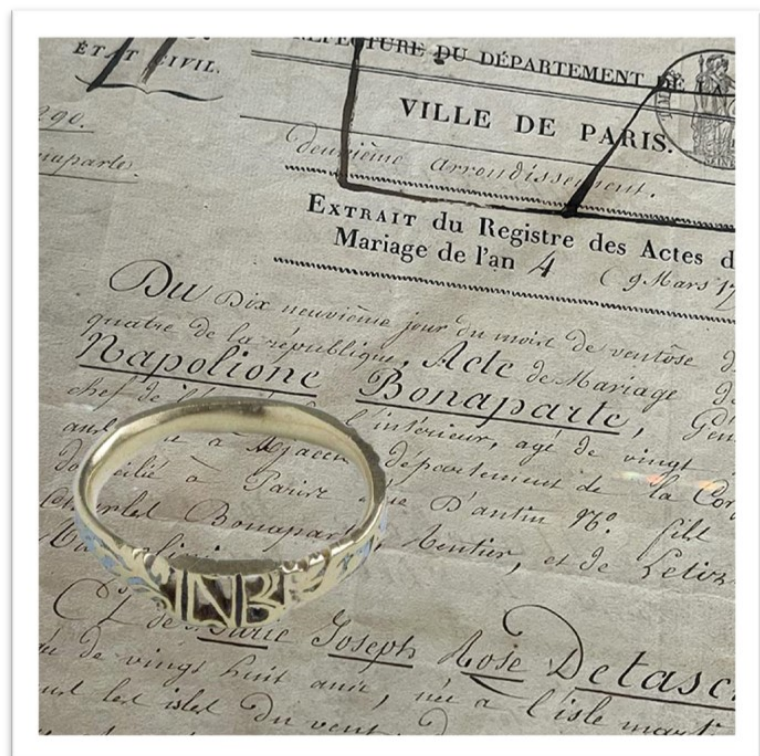 ÉTAT CIVIL.
PRÉFECTURE DU DÉPARTEMENT DE LA
VILLE DE PARIS.
deuxième arrondissement.
EXTRAIT du Registre des Actes d
Mariage de l'an 4 (9 Mars 17
Du Dix neuvième jour du mois de ventôse
quatre de la république, Acte de Mariage de
Napolione Bonaparte, Gén
chef de l'intérieur, agé de vingt
né a Ajaccio département de la Cor
domicilié à Paris rue D'antin No. fils
Bonaparte, Rentier, et de Letiz
Et de Marie Joseph Rose Detasc
de vingt huit ans, née a l'isle mart
les isles du vent,
NB